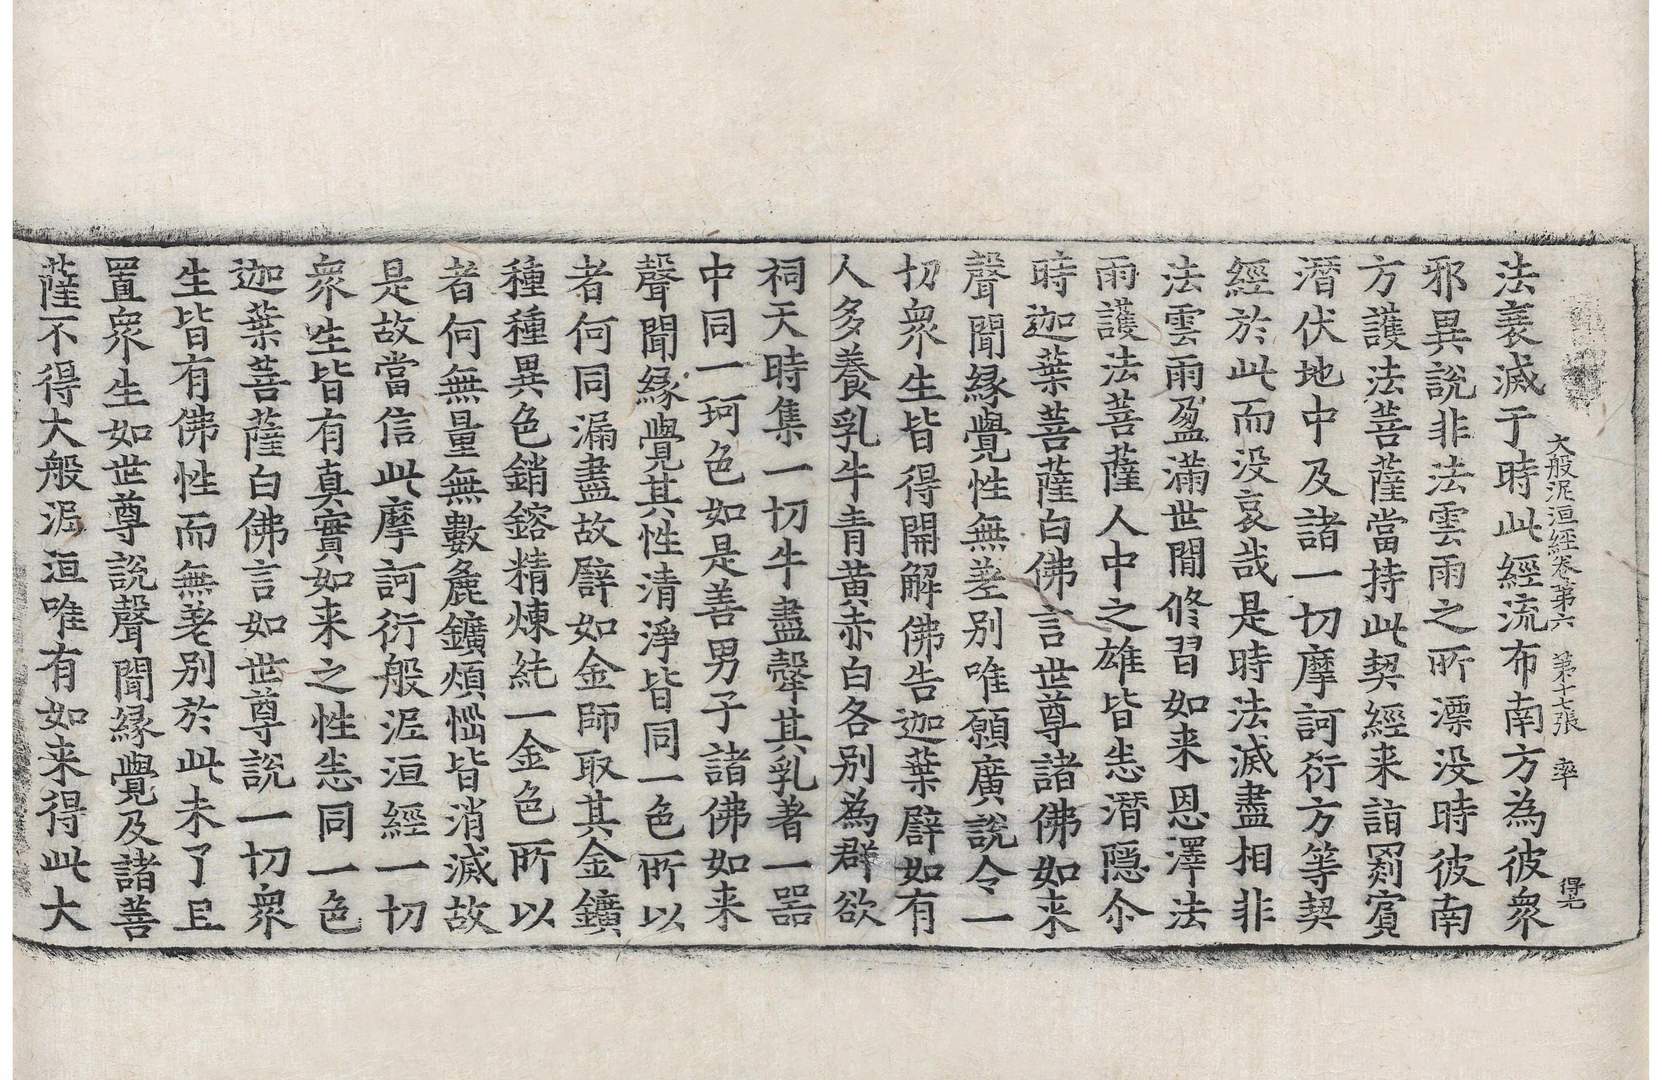 大般泥洹經卷第六 第十七張 率 得尤
法衰滅于時此經流布南方為彼衆
邪異說非法雲雨之所漂没時彼南
方護法菩薩當持此契經来詣罽賓
潛伏地中及諸一切摩訶衍方等契
經於此而没哀哉是時法滅盡相非
法雲雨盈滿世間修習如来恩澤法
雨護法菩薩人中之雄皆悉潛隱尒
時迦葉菩薩白佛言世尊諸佛如来
聲聞緣覺性無差別唯願廣說令一
切衆生皆得開解佛告迦葉譬如有
人多養乳牛青黃赤白各別為群欲
祠天時集一切牛盡𤚲其乳著一器
中同一珂色如是善男子諸佛如来
聲聞緣覺其性清淨皆同一色所以
者何同漏盡故譬如金師取其金鑛
種種異色銷鎔精煉純一金色所以
者何無量無數麁鑛煩惱皆消滅故
是故當信此摩訶衍般泥洹經一切
衆生皆有真實如来之性悉同一色
迦葉菩薩白佛言如世尊說一切衆
生皆有佛性而無差別於此未了且
置衆生如世尊說聲聞緣覺及諸菩
薩不得大般泥洹唯有如来得此大